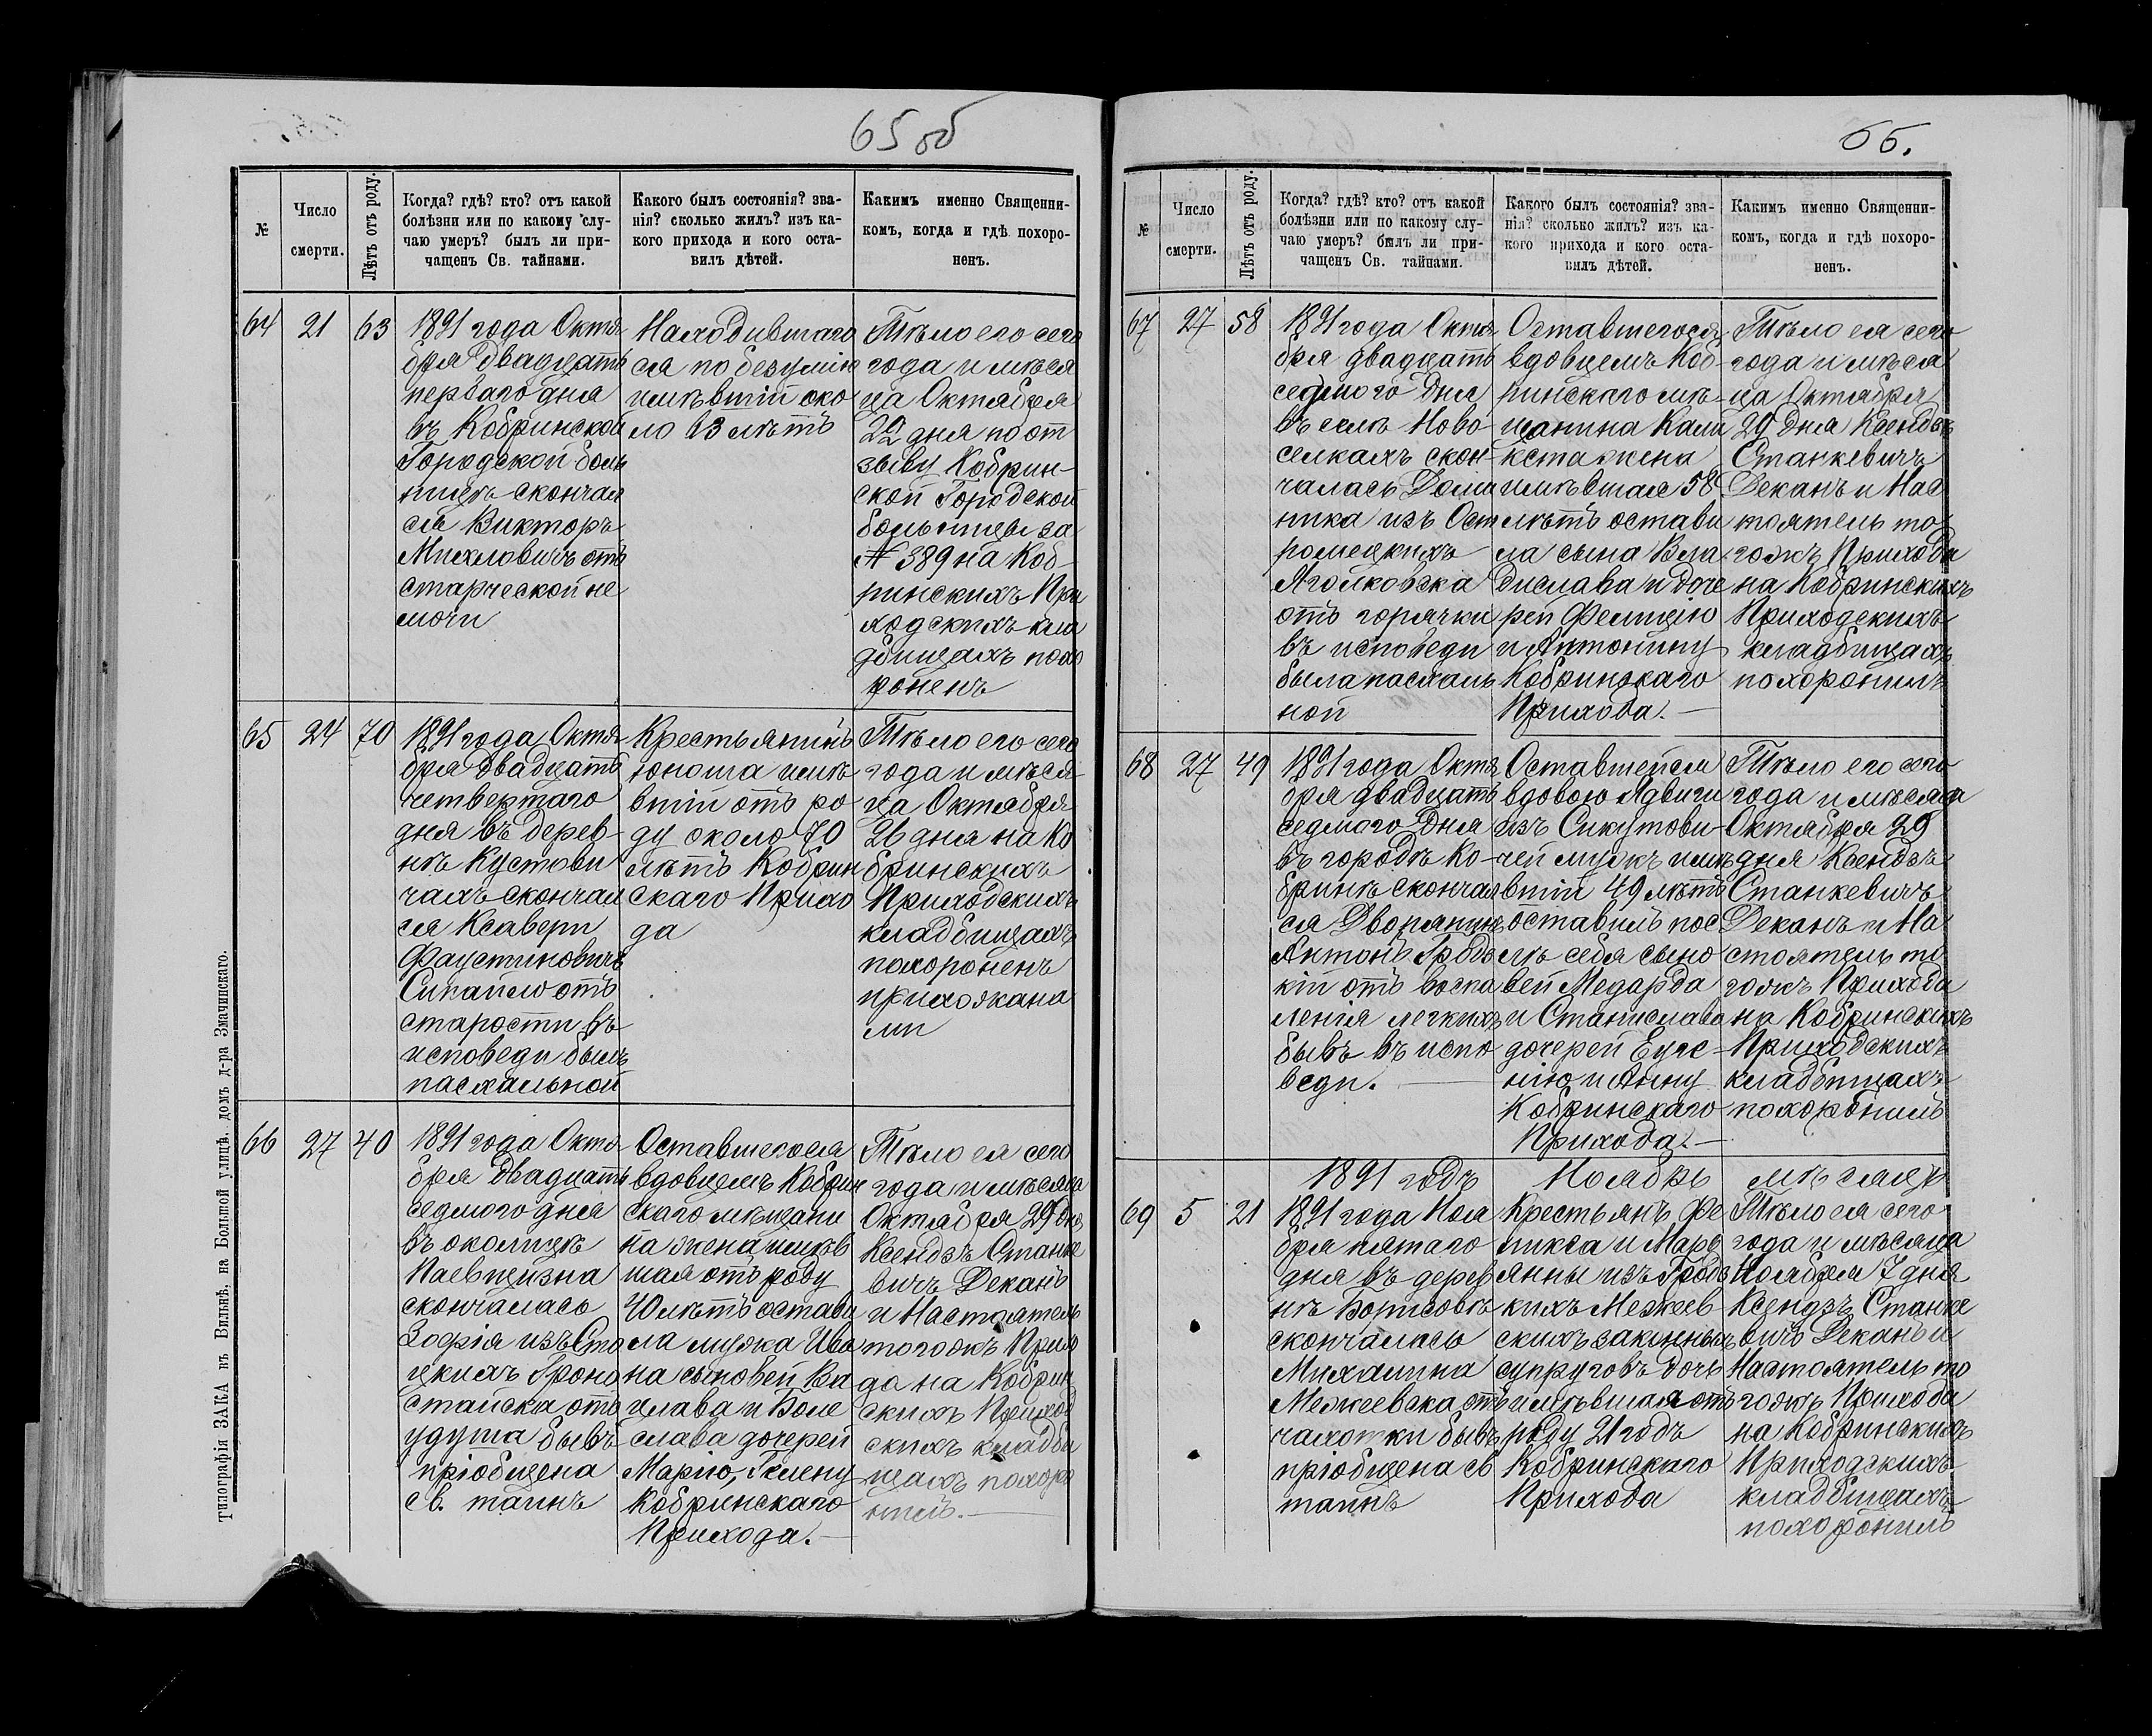 65 об
№
Число
смерти.
Лѣтъ отъ роду.
Когда? гдѣ? кто? отъ какой
болѣзни или по какому слу-
чаю умеръ? былъ ли при-
чащенъ Св. тайнами.
Какого былъ состоянія? зва-
нія? сколько жилъ? изъ ка-
кого прихода и кого оста-
вилъ дѣтей.
Какимъ именно Священни-
комъ, когда и гдѣ похоро-
ненъ.
64
21
63
1891 года Октя-
бря двадцать
перваго дня
въ Кобринской
Городской боль
ницѣ скончал
ся Викторъ
Михловичъ отъ
старческой не
мочи
Находившаго
ся по безумію
имѣвшій око
ло 63 лѣтъ
Тѣло его сего
года и мѣся
ца Октября
22 дня по от
зыву Кобрин-
ской Городской
больницы за
№ 389 на Коб-
ринскихъ При
ходскихъ кла
дбищахъ похо
роненъ
65
24
70
1891 года Октя-
бря двадцать
четвертаго
дня въ дерев-
нѣ Кустови
чахъ скончал
ся Ксавери
Фаустиновичъ
Сикайло отъ
старости въ
исповеди былъ
пасхальной
Крестьянинъ
юноша имѣ-
вшій отъ ро-
ду около 70
лѣтъ Кобрин
скаго Прихо
да
Тѣло его сего
года и мѣся-
ца Октября
26 дня на Ко
бринскихъ
Приходскихъ
кладбищахъ
похороненъ
прихожана
ми
66
27
40
1891 года Октя-
бря двадцать
седмого дня
въ околицѣ
Паевщизна
скончалась
Зофія изъ Сто
цкихъ Гроно
стайска отъ
удуша бывъ
пріобщена
св. таинъ
Оставшегося
вдовцемъ Кобрин
скаго мѣщани
на жена имѣв
шая отъ роду
40 лѣтъ остави
ла мужа Ива
на сыновей Ва
цлава и Боле
слава дочерей
Марію, Гелену
Кобринскаго
Прихода.
Тѣло ея сего
года и мѣсяца
Октября 29 дня
Ксендзъ Станке
вичъ Деканъ
и Настоятель
тогожъ Прихо
да на Кобрин
скихъ Приход
скихъ кладби
щахъ похоро
нилъ.
Типографія ЗАКА въ Вильнѣ, на Большой улицѣ, домъ д-ра Змачинскаго.
66.
№
Число
смерти.
Лѣтъ отъ роду.
Когда? гдѣ? кто? отъ какой
болѣзни или по какому слу-
чаю умеръ? былъ ли при-
чащенъ Св. тайнами.
Какого былъ состоянія? зва-
нія? сколько жилъ? изъ ка-
кого прихода и кого оста-
вилъ дѣтей.
Какимъ именно Священни-
комъ, когда и гдѣ похоро-
ненъ.
67
27
58
1891 года Октя-
бря двадцать
седмого дня
въ селѣ Ново
селкахъ скон-
чалась Доми
ника изъ Ост
ромецкихъ
Яголковска
отъ горячки
въ исповеди
была пасхаль
ной
Оставшегося
вдовцемъ Коб-
ринскаго мѣ-
щанина Кали
кста жена
имѣвшая 58
лѣтъ остави
ла сына Вла
дислава и доче
рей Фелицію
и Антонину
Кобринскаго
Прихода.
Тѣло ея сего
года и мѣся
ца Октября
29 дня Ксендзъ
Станкевичъ
Деканъ и Нас
тоятель то
гожъ Прихода
на Кобринскихъ
Приходскихъ
кладбищахъ
похоронилъ
68
27
49
1891 года Октя
бря двадцать
седмого дня
въ городѣ Ко-
бринѣ скончал
ся Дворянинъ
Антонъ Гродз
кій отъ воспа
ленія легкихъ
бывъ въ испо
веди.
Оставшейся
вдовою Ядвиги
изъ Сикутови-
чей мужъ имѣ
вшій 49 лѣтъ
оставилъ пос
лѣ себя сыно
вей Медарда
и Станислава
дочерей Евге-
нію и Анну
Кобринскаго
Прихода.
Тѣло его сего
года и мѣсяца
Октября 29
дня Ксендзъ
Станкевичъ
Деканъ и На
стоятель то
гожъ Прихода
на Кобринскихъ
Приходскихъ
кладбищахъ
похоронилъ
1891 годъ Ноябрь мѣсяцъ
69
5
21
1891 года Ноя
бря пятаго
дня въ дерев
нѣ Борисовѣ
скончалась
Михалина
Межеевска отъ
чахотки бывъ
пріобщена св
таинъ
Крестьянъ Фе
ликса и Мары
янны изъ Гродз
кихъ Межеев
скихъ законныхъ
супруговъ дочь
имѣвшая отъ
роду 21 годъ
Кобринскаго
Прихода
Тѣло ея сего
года и мѣсяца
Ноября 7 дня
Ксендзъ Станке
вичъ Деканъ и
Настоятель то
гожъ Прихода
на Кобринскихъ
Приходскихъ
кладбищахъ
похоронилъ